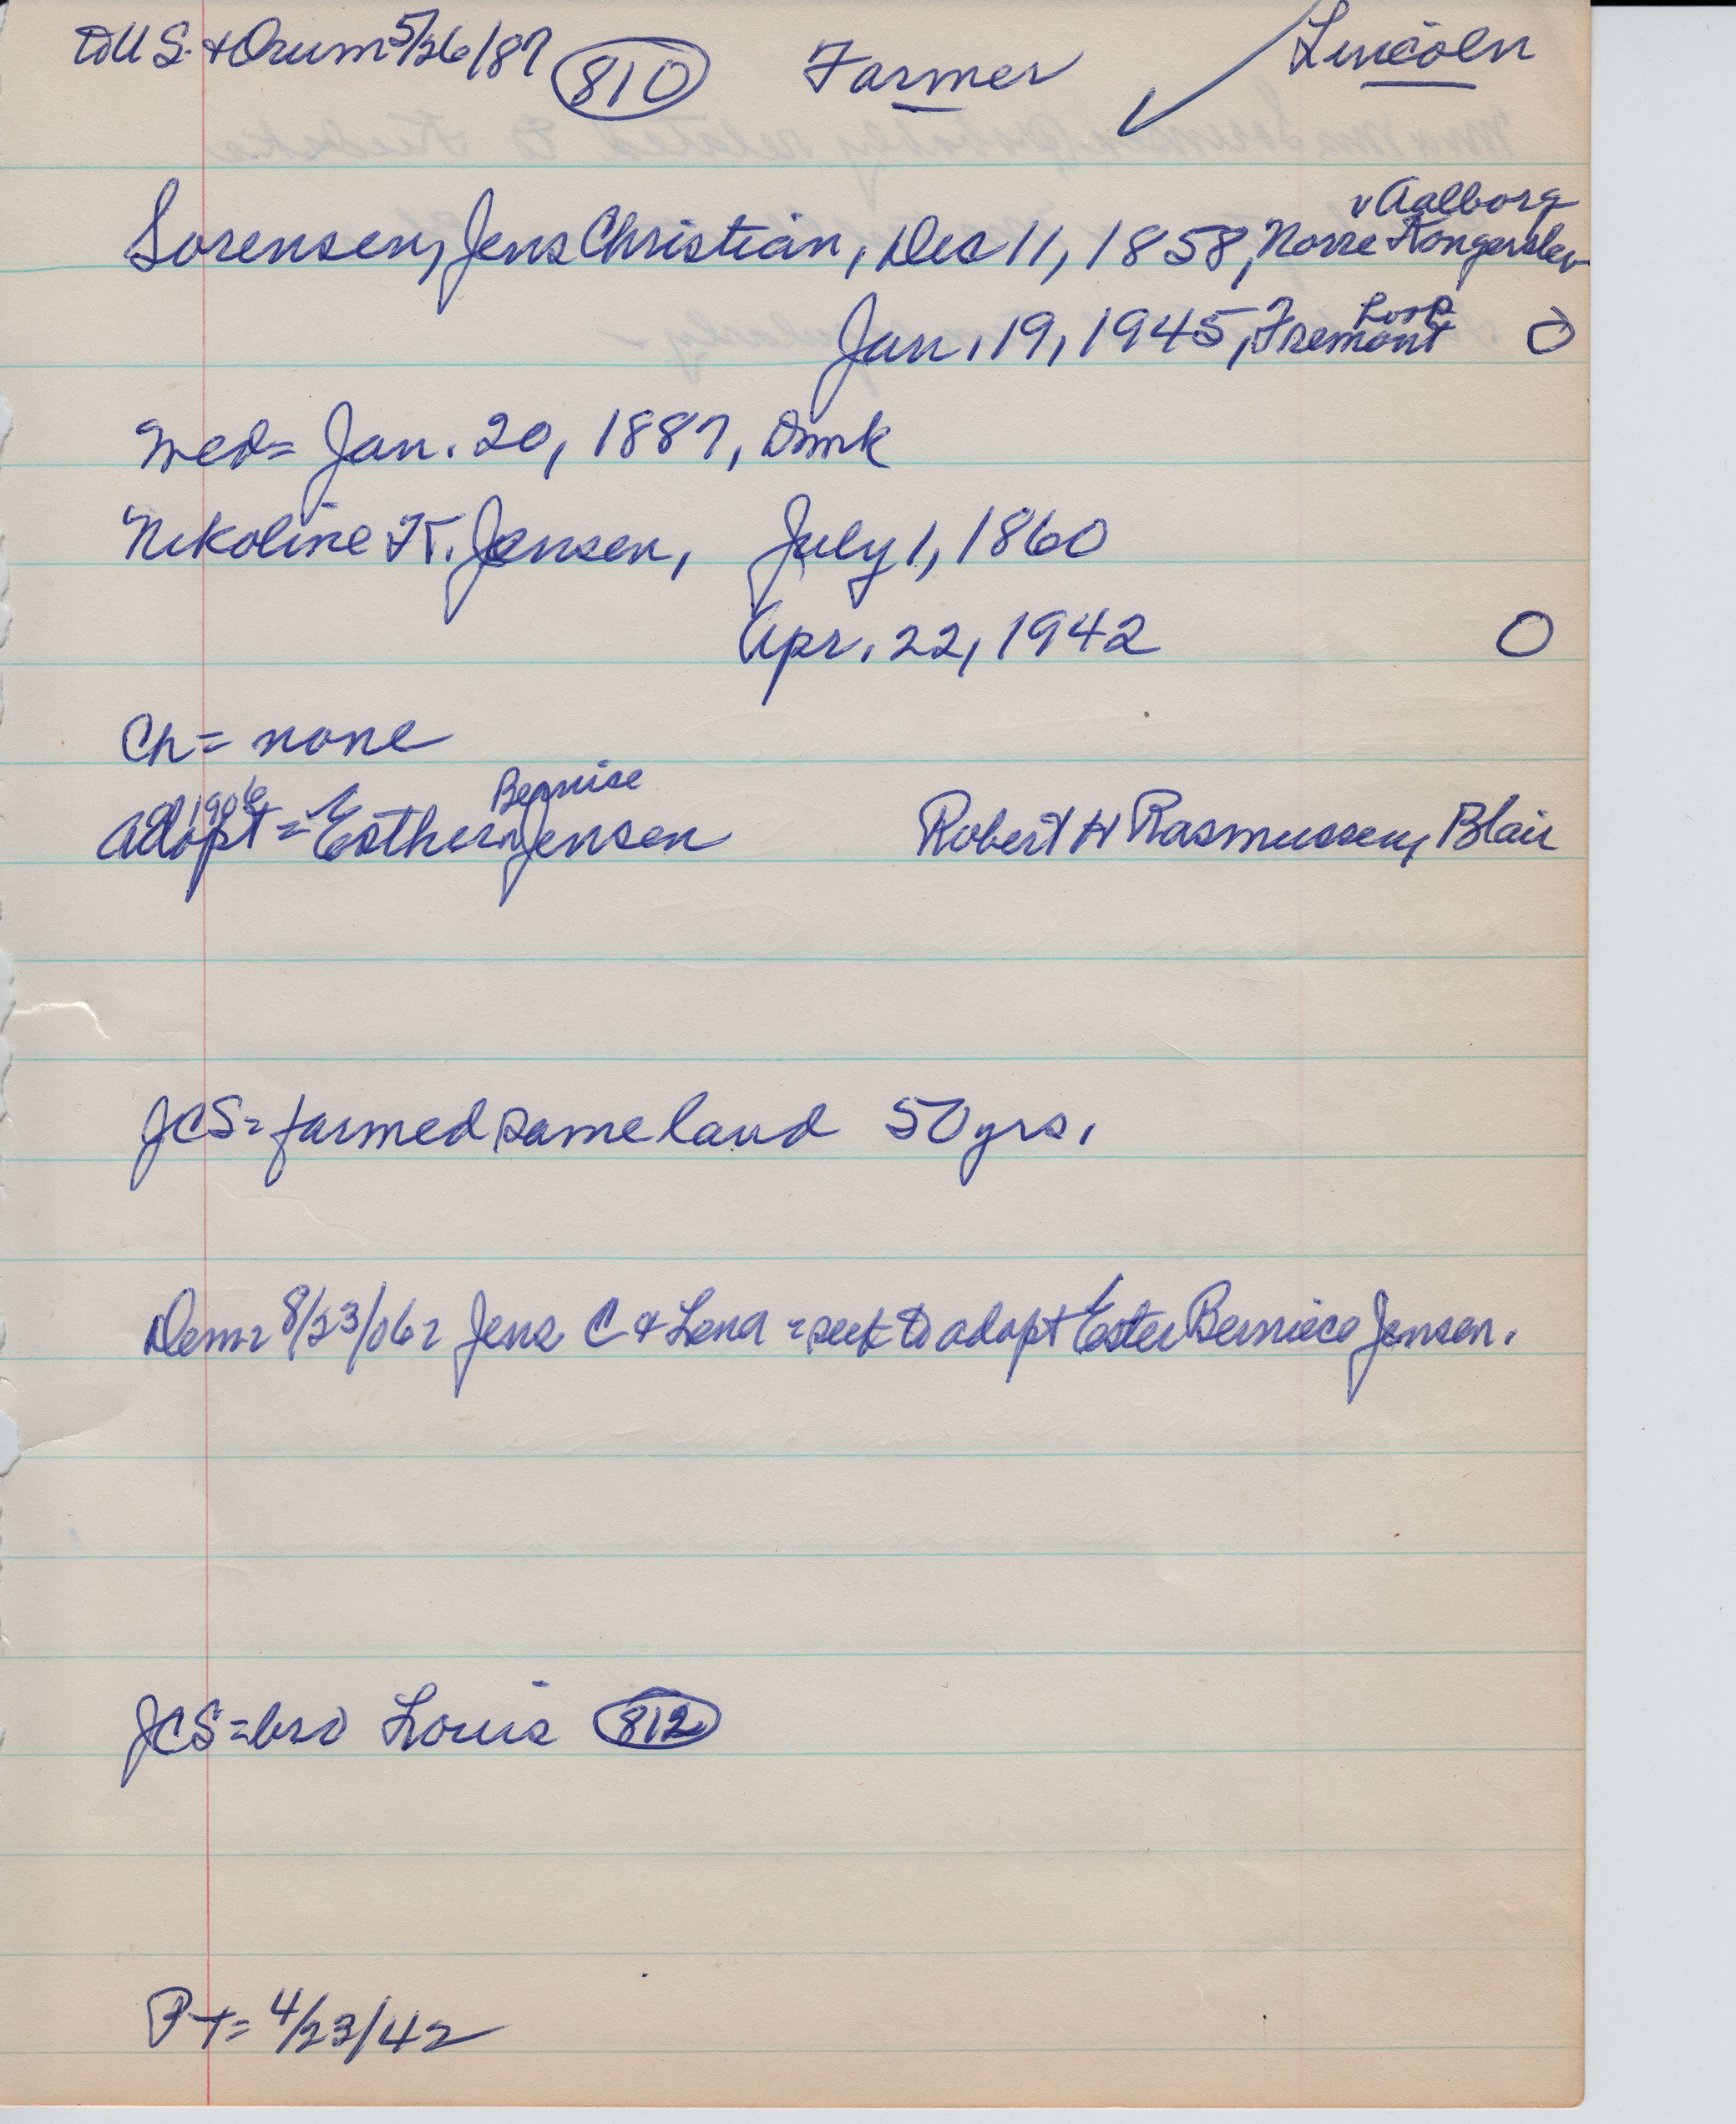 to U S. + Orum 5/26/87 810 Farmer Lincoln
v Aalborg
Sorensen, Jens Christian, Dec 11, 1858, Norre Kongerslev
Hosp
Jan. 19, 1945, Fremont O
Wed = Jan. 20, 1887, Dmk
Nikoline K. Jensen, July 1, 1860
Apr. 22, 1942 O
Ch = none
1906 Bernice
Adopt = Esther Jensen Robert H Rasmussen, Blair
JCS = farmed same land 50 yrs.
Dem = 8/23/06 = Jens C + Lena = seek to adopt Ester Berniece Jensen.
JCS = bro Louis 812
PT = 4/23/42